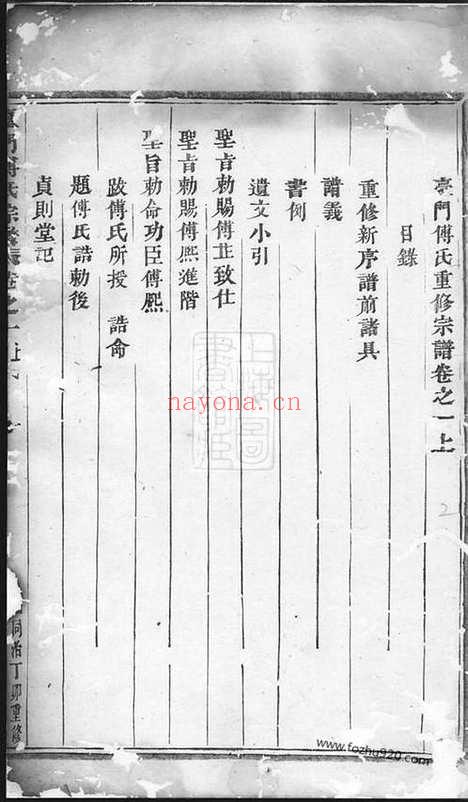 亭門傅氏重修宗譜卷之一上
目錄
重修新序譜前諸具
譜義
書例
遺文小引
聖旨勅賜傅芷致仕
聖旨勅賜傅熈進階
聖旨勅命功臣傅熈
跋傅氏所授 誥命
題傅氏誥勅後
貞則堂記
傅氏宗譜 卷之一上
同治丁卯重修
上海圖書館藏
nayona.cn
2
www.fozhu920.com